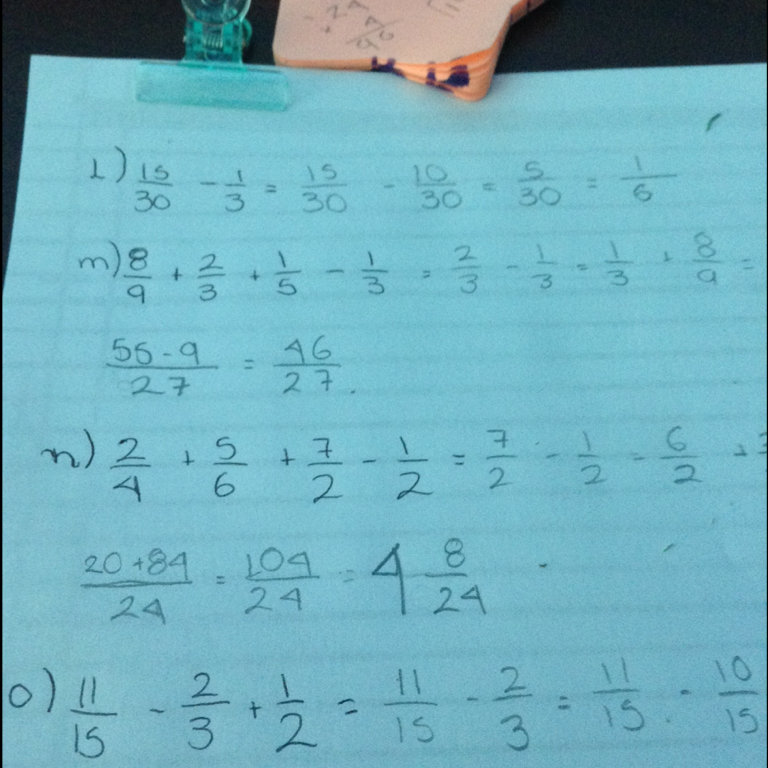 l) 15/30 - 1/3 = 15/30 - 10/30 = 5/30 = 1/6
m) 8/9 + 2/3 + 1/5 - 1/3 = 2/3 - 1/3 = 1/3 + 8/9 =
55-9/27 = 46/27.
n) 2/4 + 5/6 + 7/2 - 1/2 = 7/2 - 1/2 = 6/2 +
20+84/24 = 104/24 = 4 8/24
o) 11/15 - 2/3 + 1/2 = 11/15 - 2/3 = 11/15 - 10/15